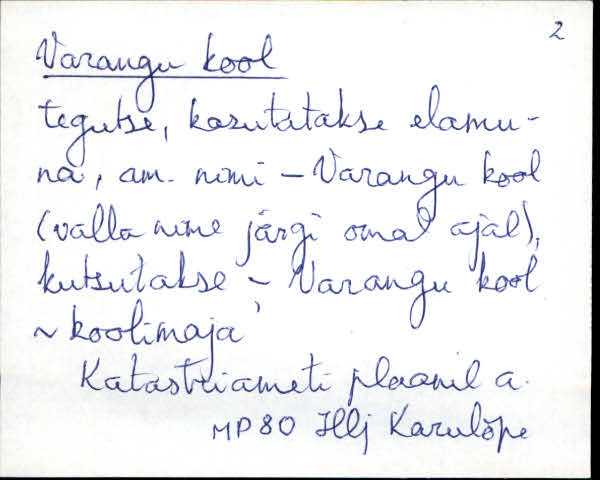 2
Varangu kool
tegutse, kasutatakse elamu-
na, am. nimi – Varangu kool
(valla nime järgi omal ajal),
kutsutakse – Varangu kool
~ koolimaja
Katastriameti plaanil a.
MP80 Hlj Karulõpe